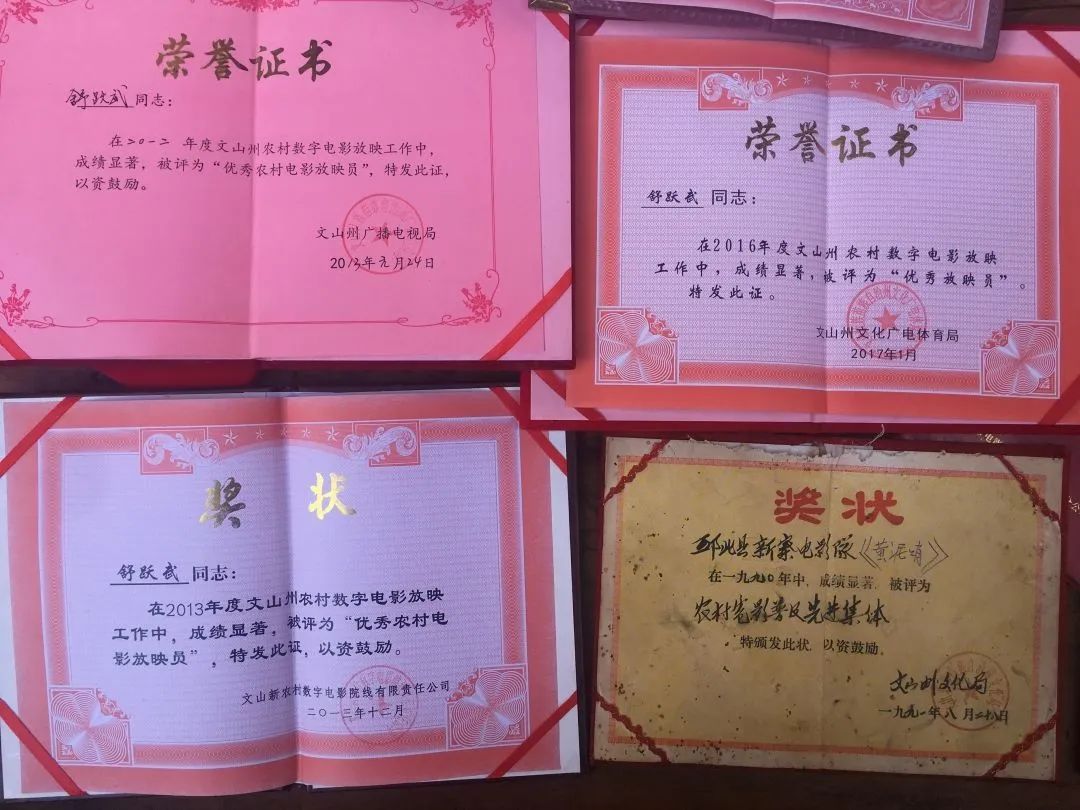 荣誉证书
舒跃武同志：
在二〇一二年度文山州农村数字电影放映工作中，
成绩显著，被评为“优秀农村电影放映员”，特发此证，
以资鼓励。
文山州广播电视局
2013年元月24日
荣誉证书
舒跃武 同志：
在2016年度文山州农村数字电影放映
工作中，成绩显著，被评为“优秀放映员”。
特发此证。
文山州文化广电体育局
2017年1月
奖状
舒跃武 同志：
在2013年度文山州农村数字电影放映
工作中，成绩显著，被评为“优秀农村电
影放映员”，特发此证，以资鼓励。
文山新农村数字电影院线有限责任公司
二〇一三年十二月
奖状
邱北县新寨电影队
在一九九〇年中，成绩显著，被评为
农村电影普及先进集体
特颁发此状，以资鼓励。
文山州文化局
一九九一年八月二十八日